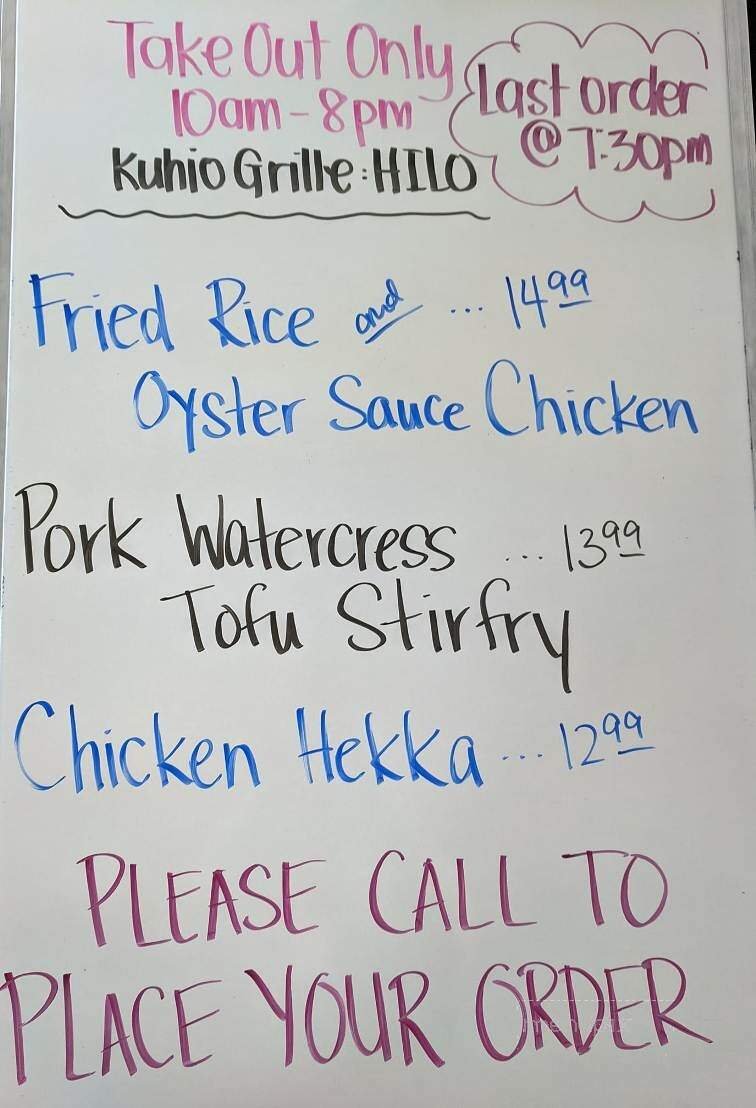 Take Out Only
10am - 8pm
Last order
@ 7:30pm
Kuhio Grille: HILO
Fried Rice and ... 14.99
Oyster Sauce Chicken
Pork Watercress ... 13.99
Tofu Stirfry
Chicken Hekka ... 12.99
PLEASE CALL TO
PLACE YOUR ORDER